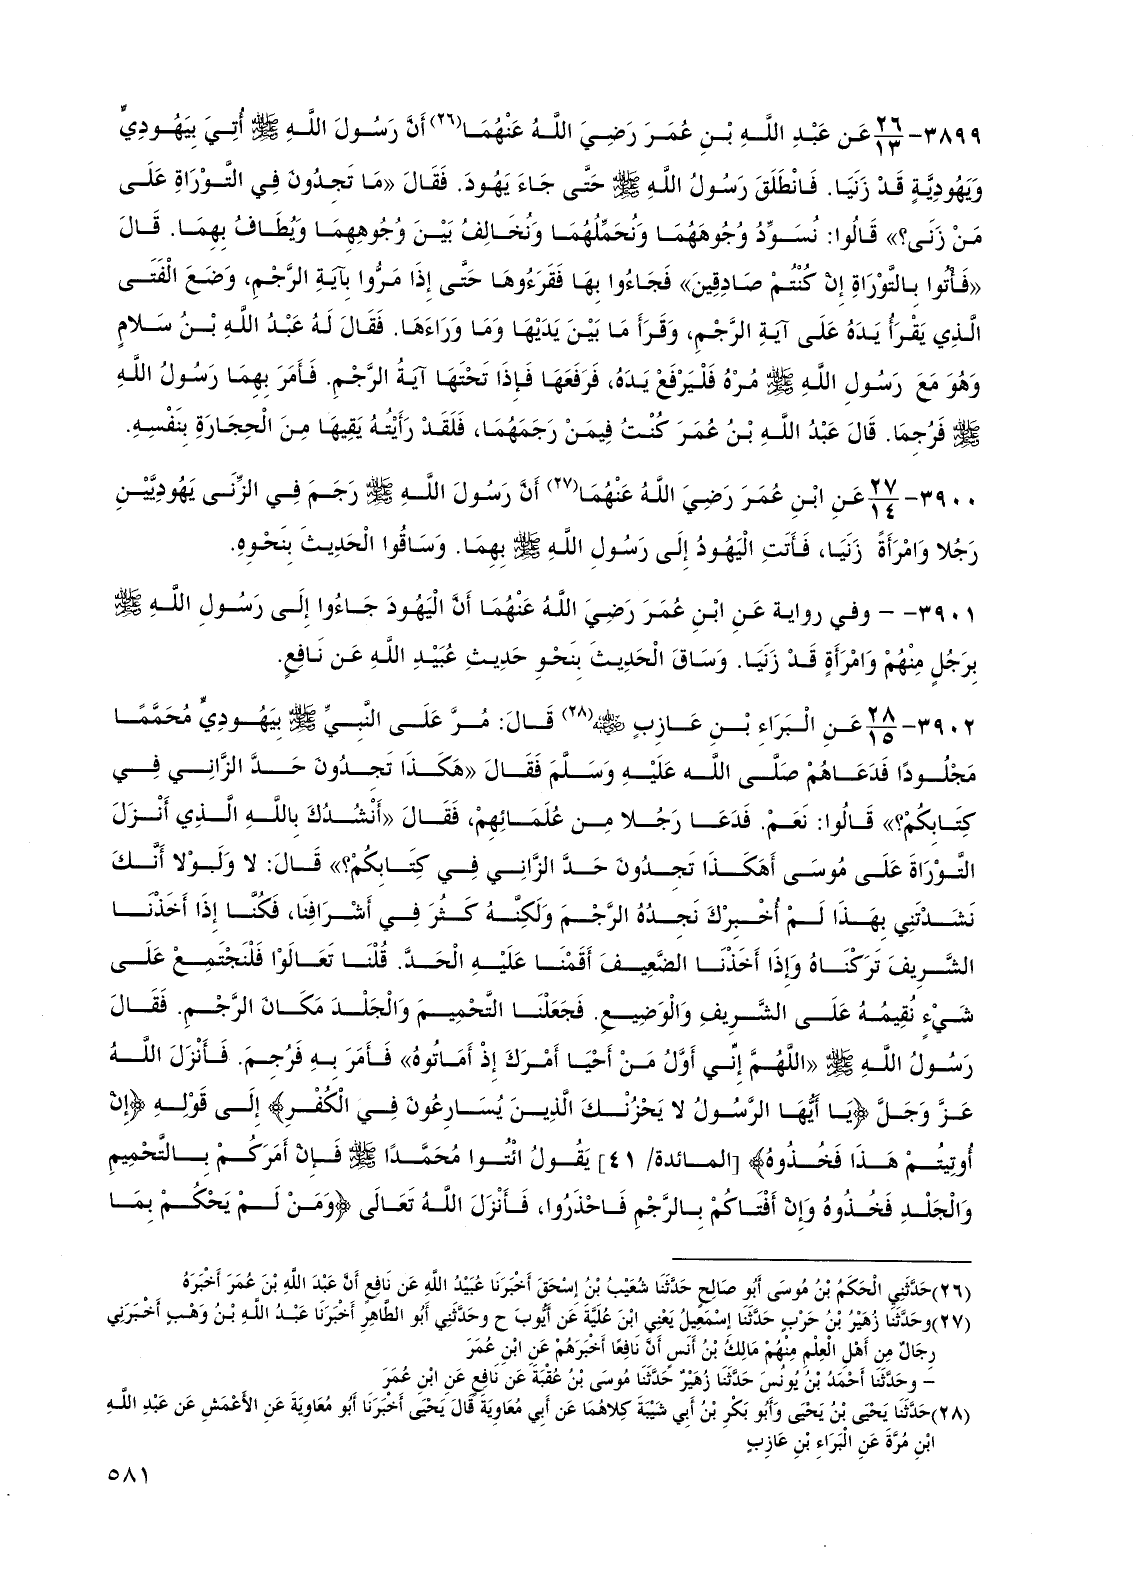 ٣٨٩٩- ٢٦/١٣ عَن عَبْدِ اللَّهِ بْنِ عُمَرَ رَضِيَ اللَّهُ عَنْهُمَا(٢٦) أَنَّ رَسُولَ اللَّهِ ﷺ أُتِيَ بِيَهُودِيٍّ
وَيَهُودِيَّةٍ قَدْ زَنَيَا. فَانْطَلَقَ رَسُولُ اللَّهِ ﷺ حَتَّى جَاءَ يَهُودَ. فَقَالَ «مَا تَجِدُونَ فِي التَّوْرَاةِ عَلَى
مَنْ زَنَى؟» قَالُوا: نُسَوِّدُ وُجُوهَهُمَا وَنُحَمِّلُهُمَا وَنُخَالِفُ بَيْنَ وُجُوهِهِمَا وَيُطَافُ بِهِمَا. قَالَ
«فَأْتُوا بِالتَّوْرَاةِ إِنْ كُنْتُمْ صَادِقِينَ» فَجَاءُوا بِهَا فَقَرَءُوهَا حَتَّى إِذَا مَرُّوا بِآيَةِ الرَّجْمِ، وَضَعَ الْفَتَى
الَّذِي يَقْرَأُ يَدَهُ عَلَى آيَةِ الرَّجْمِ، وَقَرَأَ مَا بَيْنَ يَدَيْهَا وَمَا وَرَاءَهَا. فَقَالَ لَهُ عَبْدُ اللَّهِ بْنُ سَلامٍ
وَهُوَ مَعَ رَسُولِ اللَّهِ ﷺ مُرْهُ فَلْيَرْفَعْ يَدَهُ، فَرَفَعَهَا فَإِذَا تَحْتَهَا آيَةُ الرَّجْمِ. فَأَمَرَ بِهِمَا رَسُولُ اللَّهِ
ﷺ فَرُجِمَا. قَالَ عَبْدُ اللَّهِ بْنُ عُمَرَ كُنْتُ فِيمَنْ رَجَمَهُمَا، فَلَقَدْ رَأَيْتُهُ يَقِيهَا مِنَ الْحِجَارَةِ بِنَفْسِهِ.
٣٩٠٠- ٢٧/١٤ عَنِ ابْنِ عُمَرَ رَضِيَ اللَّهُ عَنْهُمَا(٢٧) أَنَّ رَسُولَ اللَّهِ ﷺ رَجَمَ فِي الزِّنَى يَهُودِيَّيْنِ
رَجُلا وَامْرَأَةً زَنَيَا، فَأَتَتِ الْيَهُودُ إِلَى رَسُولِ اللَّهِ ﷺ بِهِمَا. وَسَاقُوا الْحَدِيثَ بِنَحْوِهِ.
٣٩٠١- - وفي رواية عَنِ ابْنِ عُمَرَ رَضِيَ اللَّهُ عَنْهُمَا أَنَّ الْيَهُودَ جَاءُوا إِلَى رَسُولِ اللَّهِ ﷺ
بِرَجُلٍ مِنْهُمْ وَامْرَأَةٍ قَدْ زَنَيَا. وَسَاقَ الْحَدِيثَ بِنَحْوِ حَدِيثِ عُبَيْدِ اللَّهِ عَن نَافِعٍ.
٣٩٠٢- ٢٨/١٥ عَنِ الْبَرَاءِ بْنِ عَازِبٍ ﵁(٢٨) قَالَ: مُرَّ عَلَى النَّبِيِّ ﷺ بِيَهُودِيٍّ مُحَمَّمًا
مَجْلُودًا فَدَعَاهُمْ صَلَّى اللَّه عَلَيْهِ وَسَلَّمَ فَقَالَ «هَكَذَا تَجِدُونَ حَدَّ الزَّانِي فِي
كِتَابِكُمْ؟» قَالُوا: نَعَمْ. فَدَعَا رَجُلا مِن عُلَمَائِهِمْ، فَقَالَ «أَنْشُدُكَ بِاللَّهِ الَّذِي أَنْزَلَ
التَّوْرَاةَ عَلَى مُوسَى أَهَكَذَا تَجِدُونَ حَدَّ الزَّانِي فِي كِتَابِكُمْ؟» قَالَ: لا وَلَوْلا أَنَّكَ
نَشَدْتَنِي بِهَذَا لَمْ أُخْبِرْكَ نَجِدُهُ الرَّجْمَ وَلَكِنَّهُ كَثُرَ فِي أَشْرَافِنَا، فَكُنَّا إِذَا أَخَذْنَا
الشَّرِيفَ تَرَكْنَاهُ وَإِذَا أَخَذْنَا الضَّعِيفَ أَقَمْنَا عَلَيْهِ الْحَدَّ. قُلْنَا تَعَالَوْا فَلْنَجْتَمِعْ عَلَى
شَيْءٍ نُقِيمُهُ عَلَى الشَّرِيفِ وَالْوَضِيعِ. فَجَعَلْنَا التَّحْمِيمَ وَالْجَلْدَ مَكَانَ الرَّجْمِ. فَقَالَ
رَسُولُ اللَّهِ ﷺ «اللَّهُمَّ إِنِّي أَوَّلُ مَنْ أَحْيَا أَمْرَكَ إِذْ أَمَاتُوهُ» فَأَمَرَ بِهِ فَرُجِمَ. فَأَنْزَلَ اللَّهُ
عَزَّ وَجَلَّ ﴿يَا أَيُّهَا الرَّسُولُ لا يَحْزُنْكَ الَّذِينَ يُسَارِعُونَ فِي الْكُفْرِ﴾ إِلَى قَوْلِهِ ﴿إِنْ
أُوتِيتُمْ هَذَا فَخُذُوهُ﴾ [المائدة/ ٤١] يَقُولُ ائْتُوا مُحَمَّدًا ﷺ فَإِنْ أَمَرَكُمْ بِالتَّحْمِيمِ
وَالْجَلْدِ فَخُذُوهُ وَإِنْ أَفْتَاكُمْ بِالرَّجْمِ فَاحْذَرُوا، فَأَنْزَلَ اللَّهُ تَعَالَى ﴿وَمَنْ لَمْ يَحْكُمْ بِمَا
(٢٦)حَدَّثَنِي الْحَكَمُ بْنُ مُوسَى أَبُو صَالِحٍ حَدَّثَنَا شُعَيْبُ بْنُ إِسْحَقَ أَخْبَرَنَا عُبَيْدُ اللَّهِ عَن نَافِعٍ أَنَّ عَبْدَ اللَّهِ بْنَ عُمَرَ أَخْبَرَهُ
(٢٧)وحَدَّثَنَا زُهَيْرُ بْنُ حَرْبٍ حَدَّثَنَا إِسْمَعِيلُ يَعْنِي ابْنَ عُلَيَّةَ عَن أَيُّوبَ ح وحَدَّثَنِي أَبُو الطَّاهِرِ أَخْبَرَنَا عَبْدُ اللَّهِ بْنُ وَهْبٍ أَخْبَرَنِي
رِجَالٌ مِن أَهْلِ الْعِلْمِ مِنْهُمْ مَالِكُ بْنُ أَنَسٍ أَنَّ نَافِعًا أَخْبَرَهُمْ عَنِ ابْنِ عُمَرَ
– وحَدَّثَنَا أَحْمَدُ بْنُ يُونُسَ حَدَّثَنَا زُهَيْرٌ حَدَّثَنَا مُوسَى بْنُ عُقْبَةَ عَن نَافِعٍ عَنِ ابْنِ عُمَرَ
(٢٨)حَدَّثَنَا يَحْيَى بْنُ يَحْيَى وَأَبُو بَكْرِ بْنُ أَبِي شَيْبَةَ كِلاهُمَا عَن أَبِي مُعَاوِيَةَ قَالَ يَحْيَى أَخْبَرَنَا أَبُو مُعَاوِيَةَ عَنِ الأَعْمَشِ عَن عَبْدِ اللَّهِ
ابْنِ مُرَّةَ عَنِ الْبَرَاءِ بْنِ عَازِبٍ
٥٨١